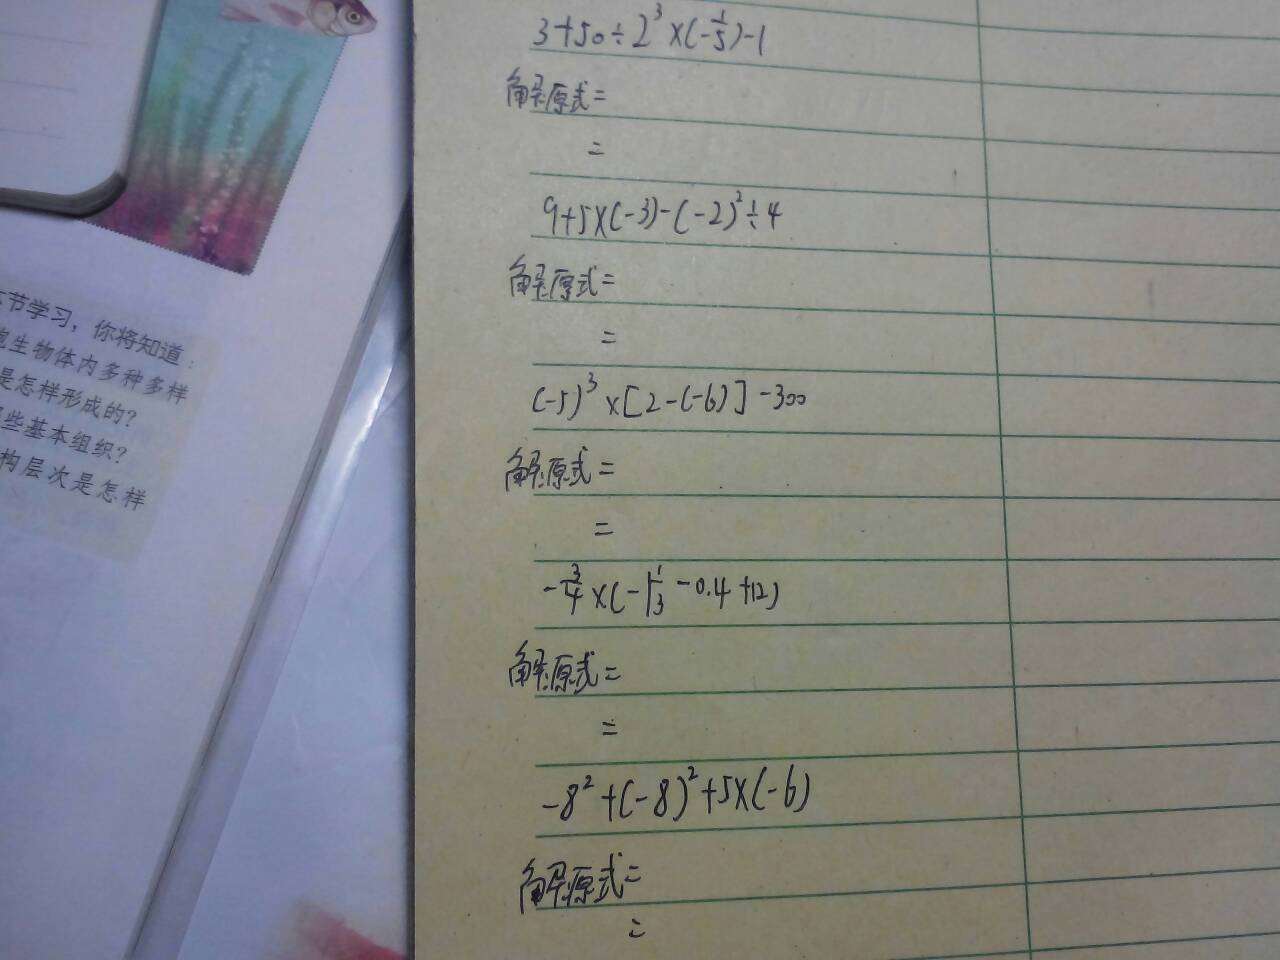 3+50÷2³×(-1/5)-1
解:原式=
=
9+5×(-3)-(-2)²÷4
解:原式=
=
(-5)³×[2-(-6)]-300
解:原式=
=
-3/4×(-1 1/3-0.4+12)
解:原式=
=
-8²+(-8)²+5×(-6)
解:原式=
=
节学习，你将知道：
生物体内多种多样
是怎样形成的？
些基本组织？
构层次是怎样